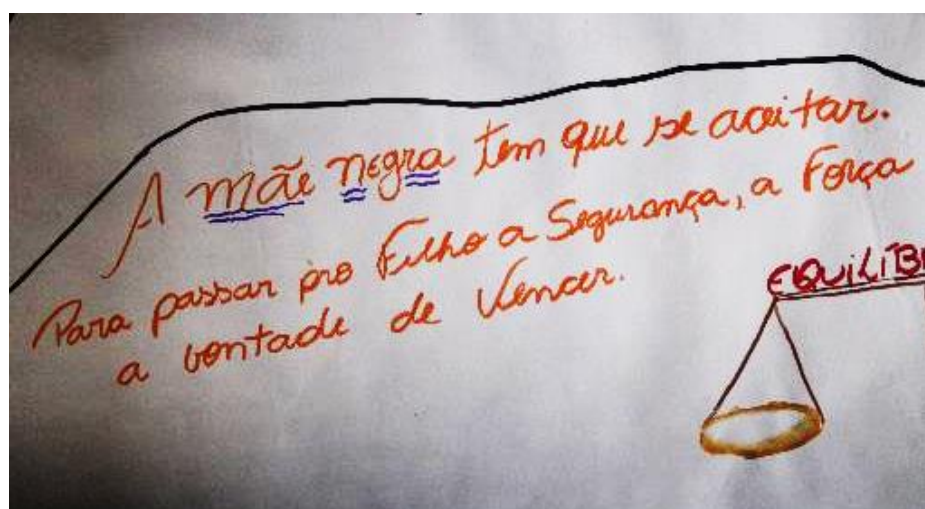 A mãe negra tem que se aceitar.
Para passar pro Filho a Segurança, a Força
a vontade de Vencer.
EQUiLiB